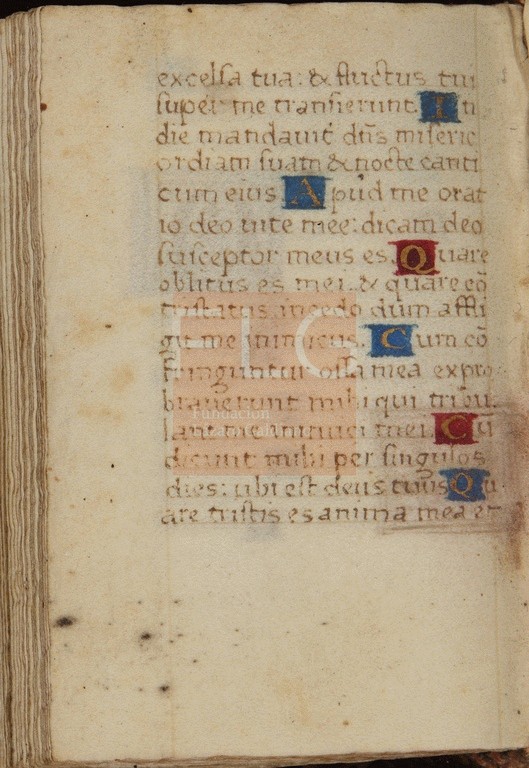 excelsa tua: & fluctus tui
super me transierunt. In
die mandavit dn̄s miseric
ordiam suam & nocte canti
cum eius Apud me orat
io deo vite mee: dicam deo
susceptor meus es. Quare
oblitus es mei. & quare cō
tristatus incedo dum affli
git me inimicus. Cum cō
fringuntur ossa mea expro
braverunt mihi qui tribu
lant me inimici mei. Cū
dicunt mihi per singulos
dies: ubi est deus tuus Qu
are tristis es anima mea et
Fundación